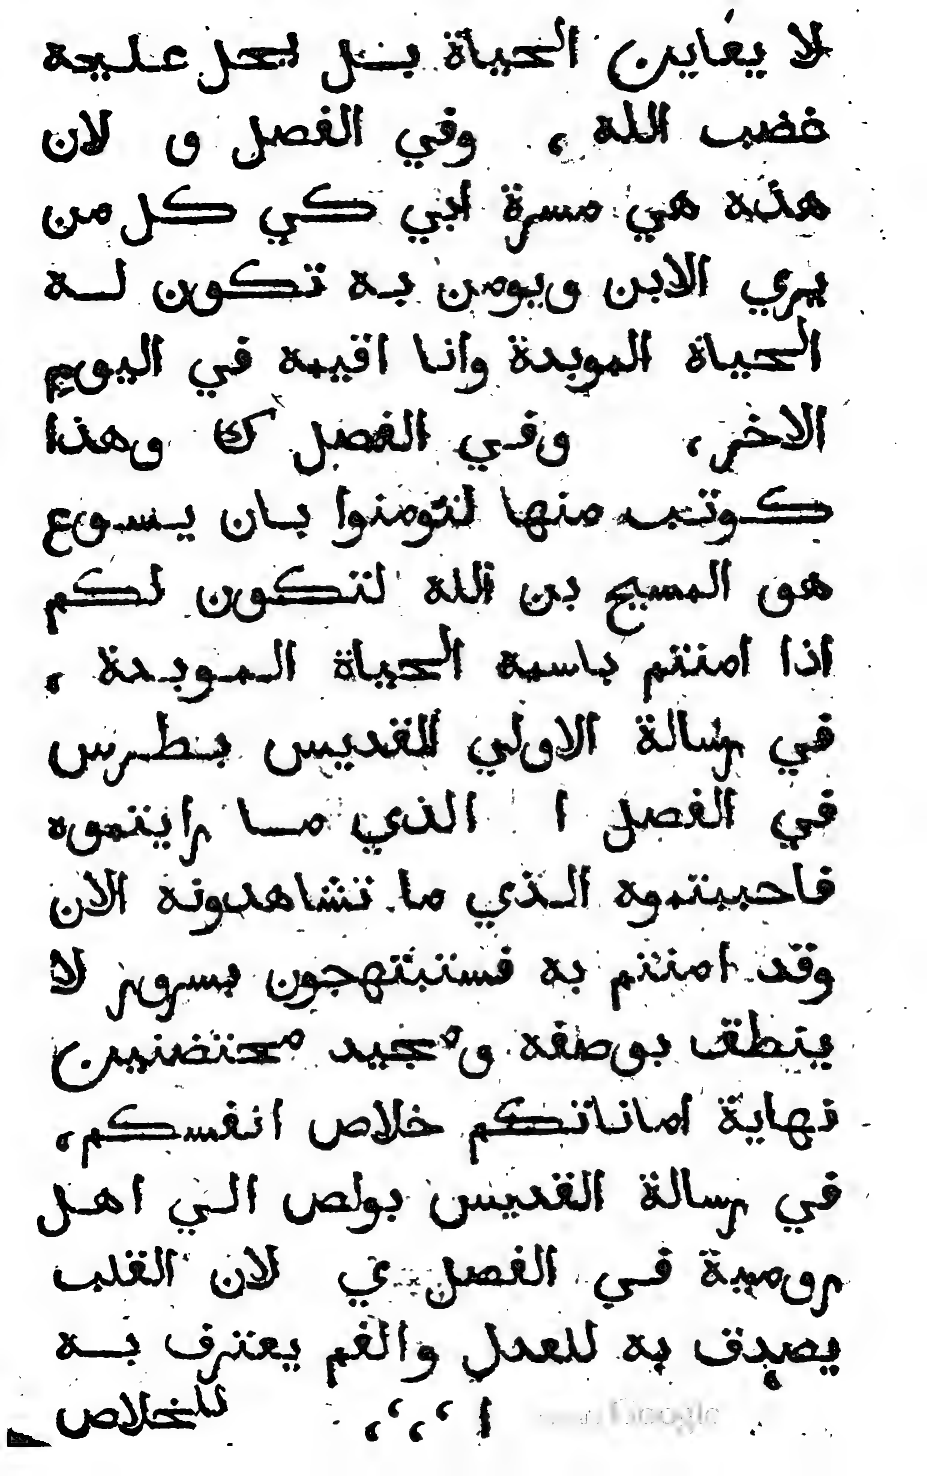 لا يعاين الحياة بل يحل عليه
غضب الله ، وفي الفصل و لان
هذه هي مسرة ابي كي كل من
يري الابن ويومن به تكون له
الحياة الموبدة وانا اقيمه في اليوم
الاخر، وفي الفصل ك وهذا
كوتب منها لتومنوا بان يسوع
هو المسيح بن الله لتكون لكم
اذا امنتم باسمه الحياة الموبدة ،
في رسالة الاولي للقديس بطرس
في الفصل ا الذي ما رايتموه
فاحببتموه الذي ما تشاهدونه الان
وقد امنتم به فستبتهجون بسرور لا
ينطق بوصفه ومجيد محتضنين
نهاية اماناتكم خلاص انفسكم،
في رسالة القديس بولص الي اهل
رومية في الفصل ي لان القلب
يصدق به للعدل والفم يعترف به
للخلاص ا ،،،،
Google